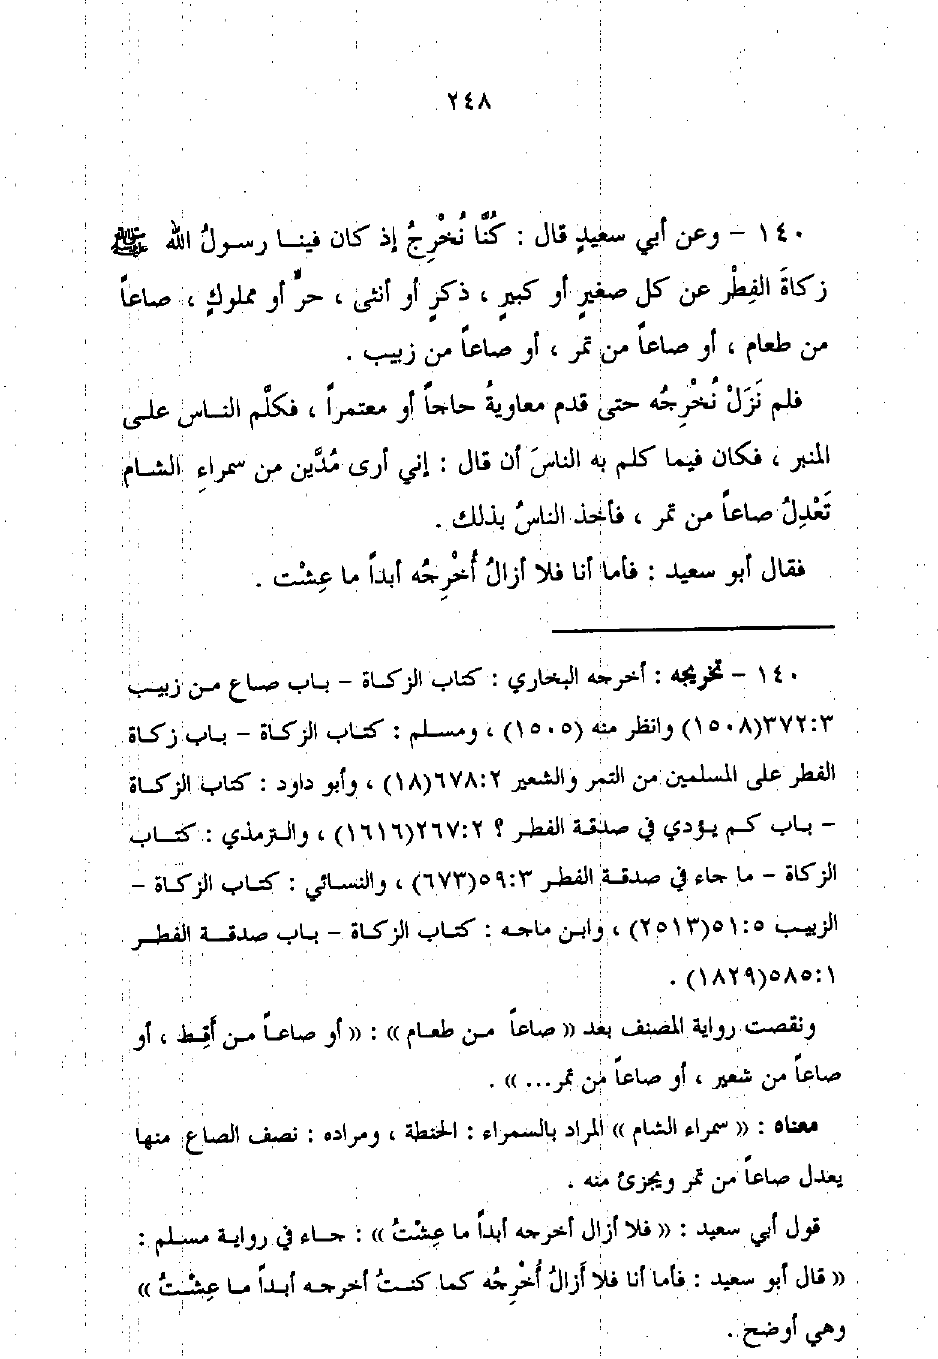 ٢٤٨
١٤٠ – وعن أبي سعيدٍ قال : كُنَّا نُخْرِجُ إذ كان فينـا رسـولُ الله ﷺ
زكاةَ الفِطْر عن كل صغيرٍ أو كبيرٍ ، ذكرٍ أو أنثى ، حرٍّ أو مملوكٍ ، صاعاً
من طعام ، أو صاعاً من تمر ، أو صاعاً من زبيب .
فلم نَزَلْ نُخْرِجُه حتى قدم معاويةُ حاجاً أو معتمراً ، فكلَّم النـاس علـى
المنبر ، فكان فيما كلم به الناسَ أن قال : إني أرى مُدَّين من سمراءِ الشـام
تَعْدِلُ صاعاً من تمر ، فأخذ الناسُ بذلك .
فقال أبو سعيد : فأما أنا فلا أزالُ أُخْرِجُه أبداً ما عِشْت .
١٤٠ – تخريجه : أخرجه البخاري : كتاب الزكـاة – بـاب صـاع مـن زبيـب
٣٧٢:٣(١٥٠٨) وانظر منه (١٥٠٥) ، ومسـلم : كتـاب الزكـاة – بـاب زكـاة
الفطر على المسلمين من التمر والشعير ٦٧٨:٢(١٨) ، وأبو داود : كتاب الزكـاة
– بـاب كـم يـؤدي في صدقـة الفطـر ؟ ٢٦٧:٢(١٦١٦) ، والـترمذي : كتـاب
الزكاة – ما جاء في صدقـة الفطـر ٥٩:٣(٦٧٣) ، والنسـائي : كتـاب الزكـاة –
الزبيـب ٥١:٥(٢٥١٣) ، وابـن ماجـه : كتـاب الزكـاة – بـاب صدقـة الفطـر
٥٨٥:١(١٨٢٩) .
ونقصت رواية المصنف بعد « صاعاً من طعـام » : « أو صاعـاً مـن أَقِـط ، أو
صاعـاً من شعير ، أو صاعاً من تمر... » .
معناه : « سمراء الشام » المراد بالسمراء : الحنطة ، ومراده : نصف الصاع منها
يعدل صاعاً من تمر ويجزئ منه .
قول أبي سعيد : « فلا أزال أخرجه أبداً ما عِشْتُ » : جـاء في روايـة مسـلم :
« قال أبو سعيد : فأما أنا فلا أَزالُ أُخْرِجُه كمـا كنـتُ أخرجـه أبـداً مـا عِشْـتُ »
وهي أوضح .